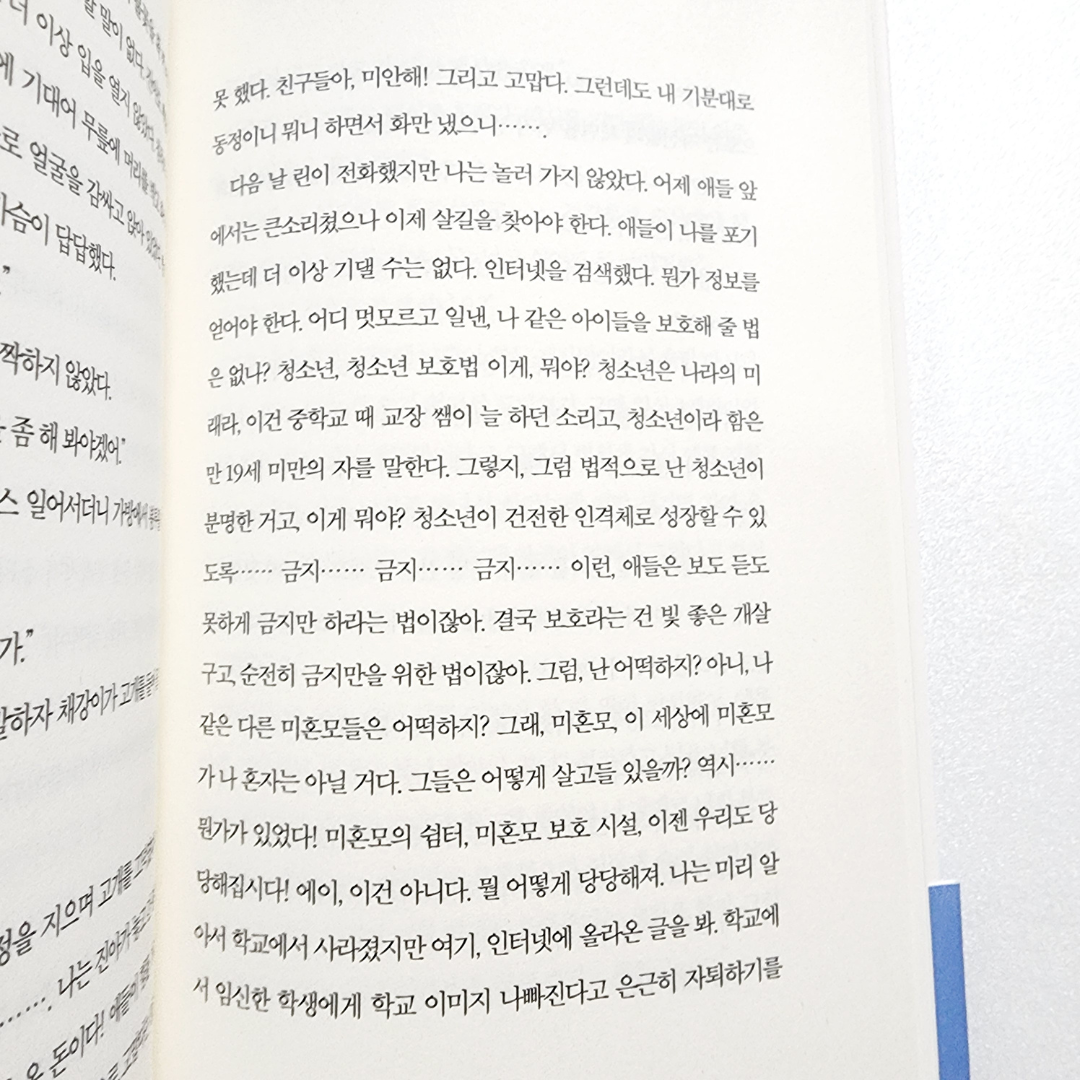 할 말이 없다.
더 이상 입을 열지 않았다.
에 기대어 무릎에 머리를
로 얼굴을 감싸고 앉아 있었다.
가슴이 답답했다.
”
짝하지 않았다.
좀 해 봐야겠어.”
스 일어서더니 가방에서
가.”
말하자 채강이가 고개를
정을 지으며 고개를
……. 나는 진아가
돈이다! 애들이
못 했다. 친구들아, 미안해! 그리고 고맙다. 그런데도 내 기분대로
동정이니 뭐니 하면서 화만 냈으니…….
다음 날 린이 전화했지만 나는 놀러 가지 않았다. 어제 애들 앞
에서는 큰소리쳤으나 이제 살길을 찾아야 한다. 애들이 나를 포기
했는데 더 이상 기댈 수는 없다. 인터넷을 검색했다. 뭔가 정보를
얻어야 한다. 어디 멋모르고 일낸, 나 같은 아이들을 보호해 줄 법
은 없나? 청소년, 청소년 보호법 이게, 뭐야? 청소년은 나라의 미
래라, 이건 중학교 때 교장 쌤이 늘 하던 소리고, 청소년이라 함은
만 19세 미만의 자를 말한다. 그렇지, 그럼 법적으로 난 청소년이
분명한 거고, 이게 뭐야? 청소년이 건전한 인격체로 성장할 수 있
도록…… 금지…… 금지…… 금지…… 이런, 애들은 보도 듣도
못하게 금지만 하라는 법이잖아. 결국 보호라는 건 빛 좋은 개살
구고, 순전히 금지만을 위한 법이잖아. 그럼, 난 어떡하지? 아니, 나
같은 다른 미혼모들은 어떡하지? 그래, 미혼모, 이 세상에 미혼모
가 나 혼자는 아닐 거다. 그들은 어떻게 살고들 있을까? 역시……
뭔가가 있었다! 미혼모의 쉼터, 미혼모 보호 시설, 이젠 우리도 당
당해집시다! 에이, 이건 아니다. 뭘 어떻게 당당해져. 나는 미리 알
아서 학교에서 사라졌지만 여기, 인터넷에 올라온 글을 봐. 학교에
서 임신한 학생에게 학교 이미지 나빠진다고 은근히 자퇴하기를